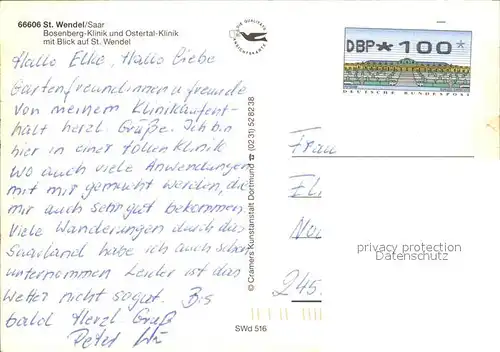 66606 St. Wendel/Saar
Bosenberg-Klinik und Ostertal-Klinik
mit Blick auf St. Wendel
DIE QUALITÄTS
ANSICHTSKARTE
DBP * 100 *
DEUTSCHE BUNDESPOST
Hallo Elke, Hallo Liebe
Gartenfreundinnen u freunde
von meinem Klinikaufent-
halt herzl. Grüße. Ich bin
hier in einer tollen Klinik
wo auch viele Anwendungen
mit mir gemacht werden, die
mir auch sehr gut bekommen
Viele Wanderungen durch das
Saarland habe ich auch schon
unternommen Leider ist das
Wetter nicht so gut. Bis
bald Herzl Gruß
Peter
© Cramers Kunstanstalt Dortmund ☎ (0231) 528238
SWd 516
Frau
El
245
privacy protection
Datenschutz